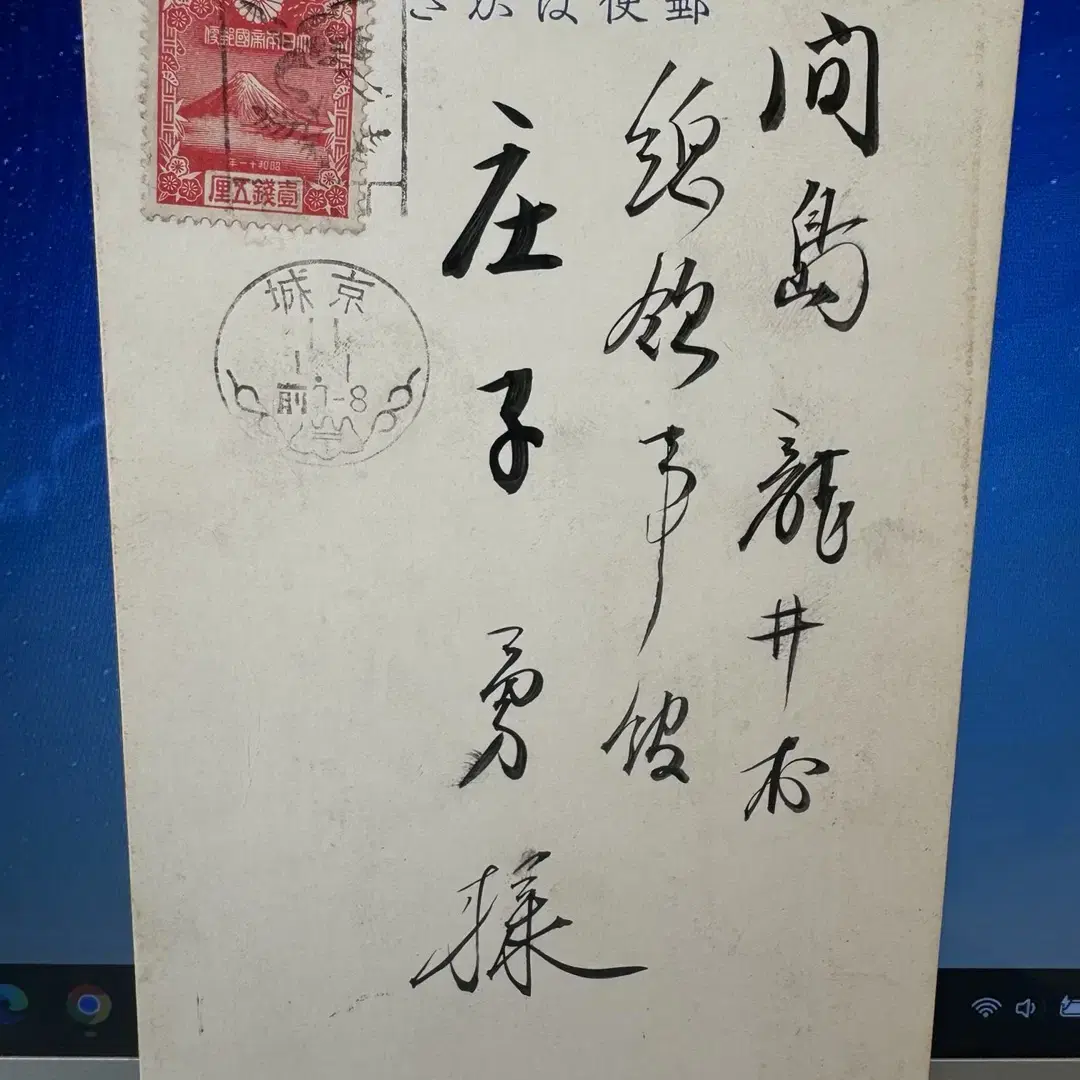 郵便はかき
間島龍井村
総領事館
庄子勇様
大日本帝國郵便
昭和十一年
壹錢五厘
京城
11
1 1
前7-8